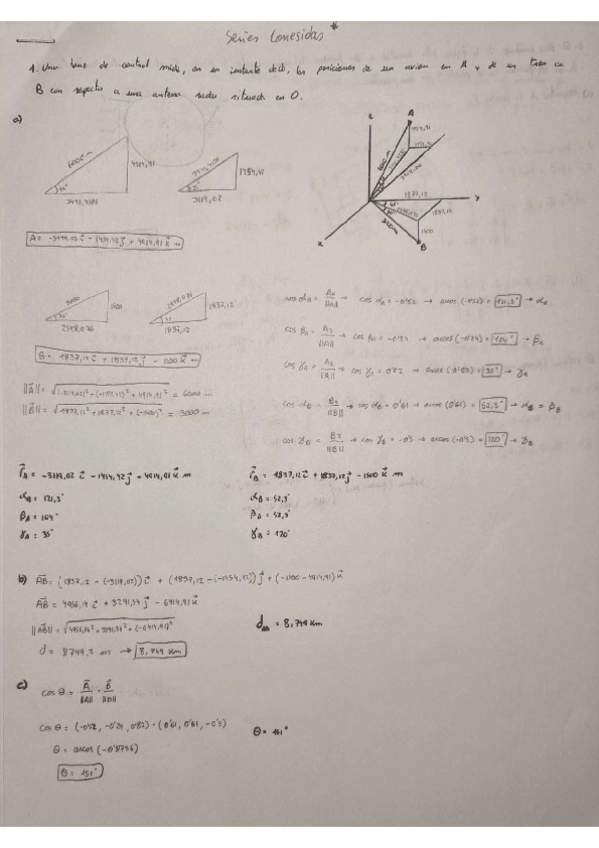 Series Corregidas *
1. Una torre de control mide, en un instante dado, las posiciones de un avion en A y de un tren en
B con respecto a una antena radar situada en O.
a)
6000 m
4914,91
55°
1454,42
3119,02
A = -3119,02 i - 1454,42 j + 4914,91 k m
3000
1500
30°
2598,076
2598,076
1837,12
1837,12
B = 1837,12 i + 1837,12 j - 1500 k m
z
A
y
x
B
1837,12
1500
||A|| = √(-3119,02)² + (-1454,42)² + 4914,91² = 6000 m
||B|| = √1837,12² + 1837,12² + (-1500)² = 3000 m
cos αA = Ax/||A|| → cos αA = -0'52 → arcos (-0'52) = 121,3° → αA
cos βA = → cos βA = → arcos = 104° → βA
cos γA = → cos γA = 0'82 → arcos = 35° → γA
cos αB = → cos αB = 0'61 → arcos (0'61) = 52,3° → αB = βB
cos γB = → cos γB = -0'5 → arcos (-0'5) = 120° → γB
rA = -3119,02 i - 1454,42 j + 4914,91 k m
αA = 121,3°
βA = 104°
γA = 35°
rB = 1837,12 i + 1837,12 j - 1500 k m
αB = 52,3°
βB = 52,3°
γB = 120°
b) AB = (1837,12 - (-3119,02)) i + (1837,12 - (-1454,42)) j + (-1500 - 4914,91) k
AB = 4956,14 i + 3291,54 j - 6414,91 k
||AB|| = √4956,14² + 3291,54² + (-6414,91)²
d = 8749,2 m → 8,749 Km
= 8,749 Km
c) cos θ = A/||A|| · B/||B||
cos θ = (-0'52, -0'24, 0'82) · (0'61, 0'61, -0'5)
θ = arcos
θ = 151°
θ = 151°